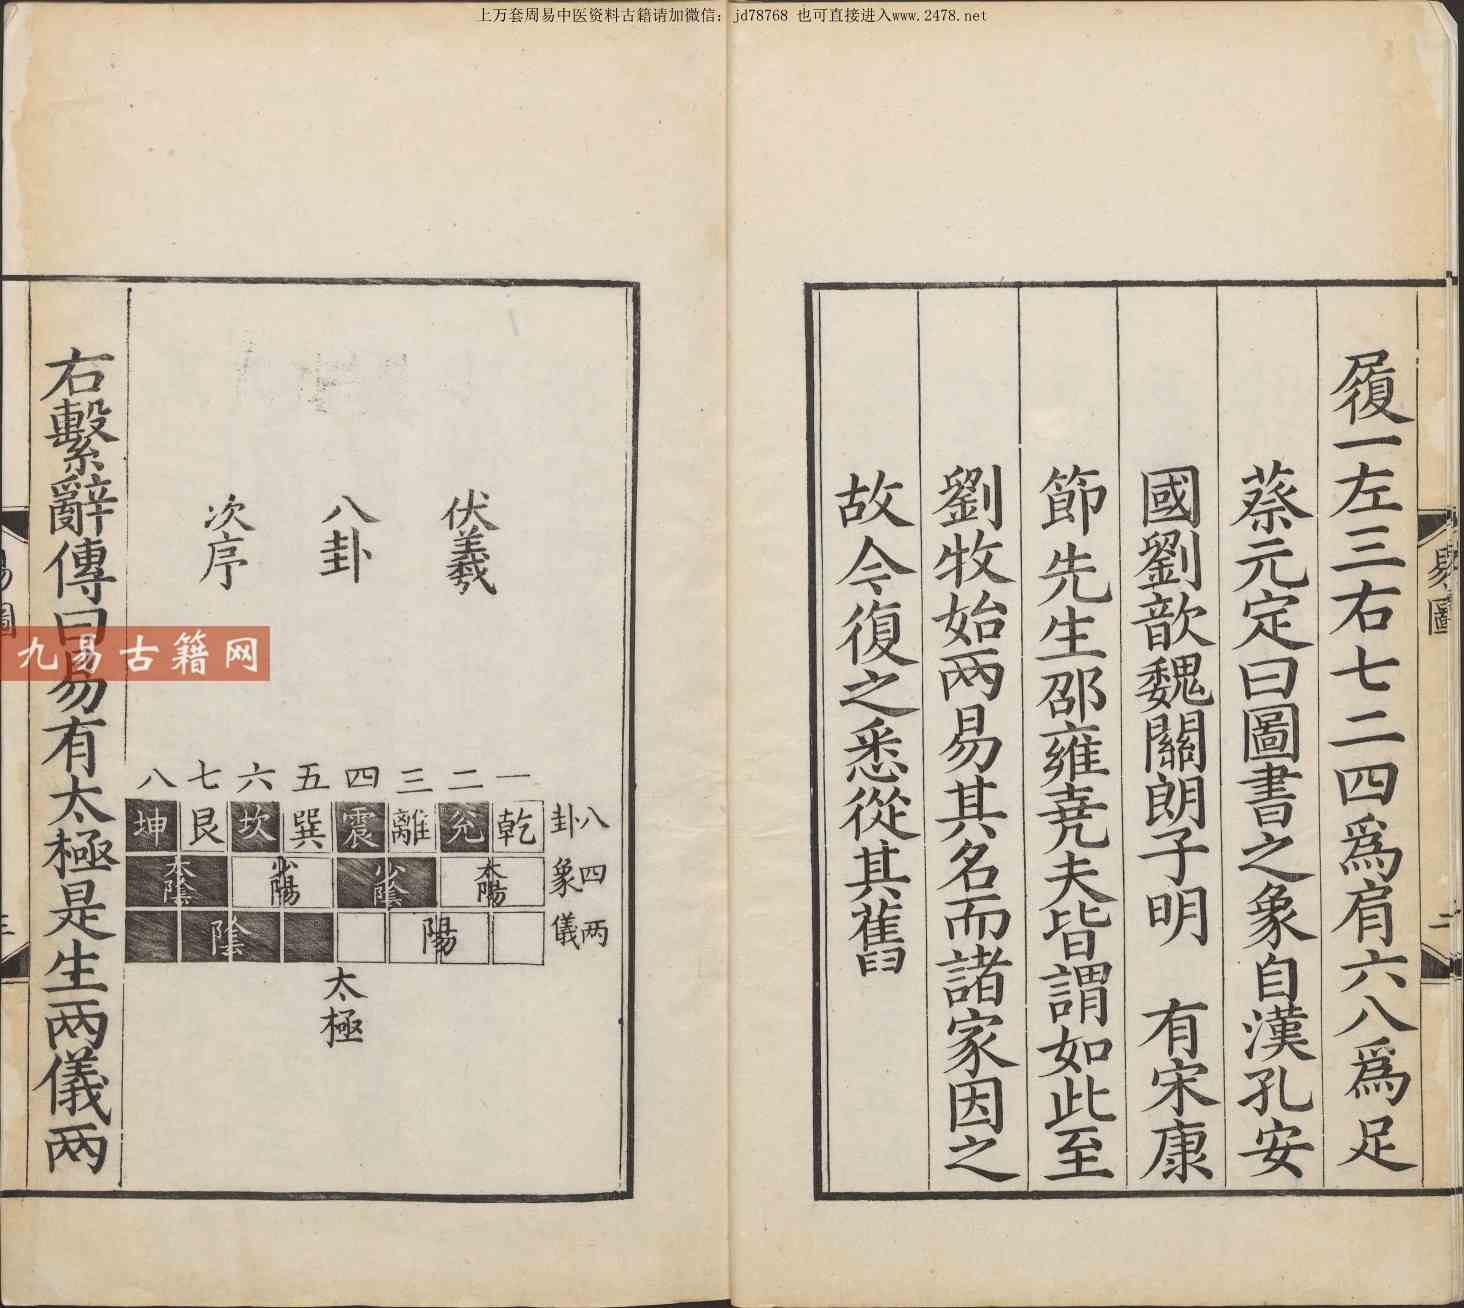 上万套周易中医资料古籍请加微信：jd78768 也可直接进入www.2478.net
履一左三右七二四爲肩六八爲足
蔡元定曰圖書之象自漢孔安
國劉歆魏關朗子明 有宋康
節先生邵雍堯夫皆謂如此至
劉牧始兩易其名而諸家因之
故今復之悉從其舊
易圖
二
伏羲
八卦
次序
一 二 三 四 五 六 七 八
八卦 乾 兌 離 震 巽 坎 艮 坤
四象 太陽 少陰 少陽 太陰
两儀 陽 陰
太極
右繫辭傳曰易有太極是生兩儀兩
九易古籍网
圖
三